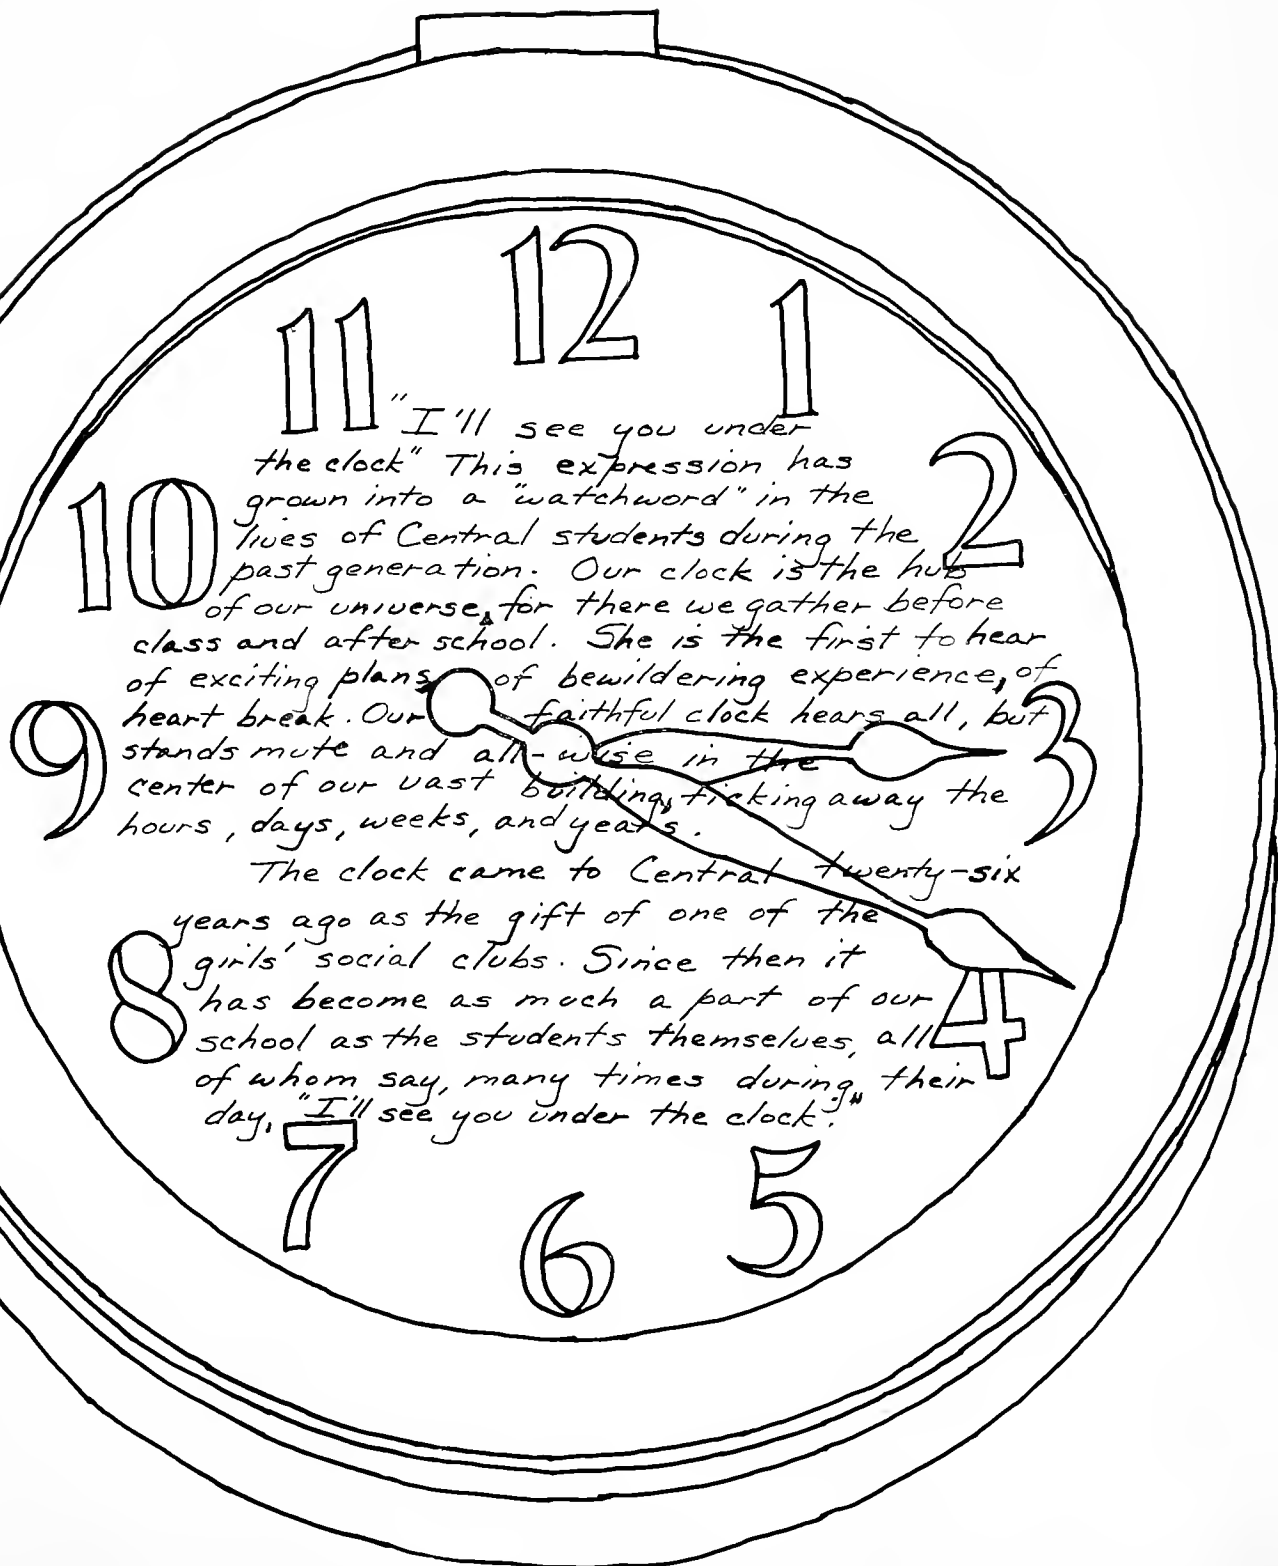 12
11
1
"I'll see you under
the clock" This expression has
grown into a "watchword" in the
lives of Central students during the
past generation. Our clock is the hub
of our universe, for there we gather before
class and after school. She is the first to hear
of exciting plans, of bewildering experience, of
heart break. Our faithful clock hears all, but
stands mute and all-wise in the
center of our vast building, ticking away the
hours, days, weeks, and years.
The clock came to Central twenty-six
years ago as the gift of one of the
girls' social clubs. Since then it
has become as much a part of our
school as the students themselves, all
of whom say, many times during, their
day, "I'll see you under the clock."
2
10
3
9
8
4
7
5
6